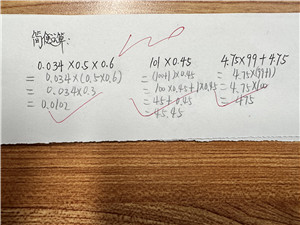 简便运算:
0.034×0.5×0.6
= 0.034×(0.5×0.6)
= 0.034×0.3
= 0.0102
101×0.45
= (100+1)×0.45
= 100×0.45+1×0.45
= 45+0.45
= 45.45
4.75×99+4.75
= 4.75×(99+1)
= 4.75×100
= 475